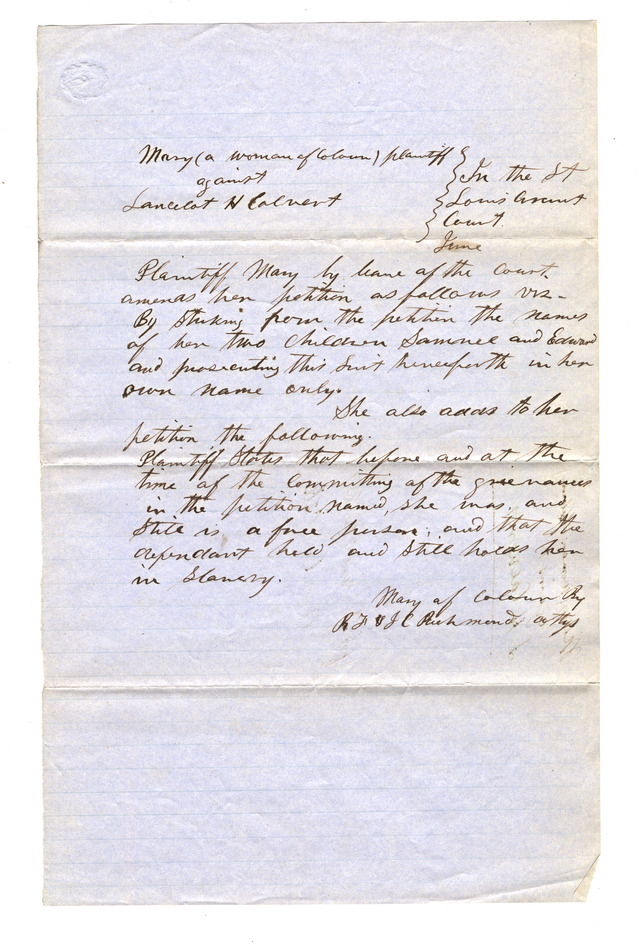 Mary (a woman of Colour) plaintiff
against
Lancelot H Calvert
In the St
Louis Circuit
Court
June
Plaintiff Mary by leave of the Court
amends her petition as follows viz-
By Striking from the petition the names
of her two Children Samuel and Edward
and prosecuting this Suit henceforth in her
own name only.
She also adds to her
petition the following.
Plaintiff States that before and at the
time of the Committing of the grievances
in the petition named, she was, and
Still is a free person; and that the
defendant held and Still holds her
in Slavery.
Mary of Colour By
R F & J C Richmond, attys